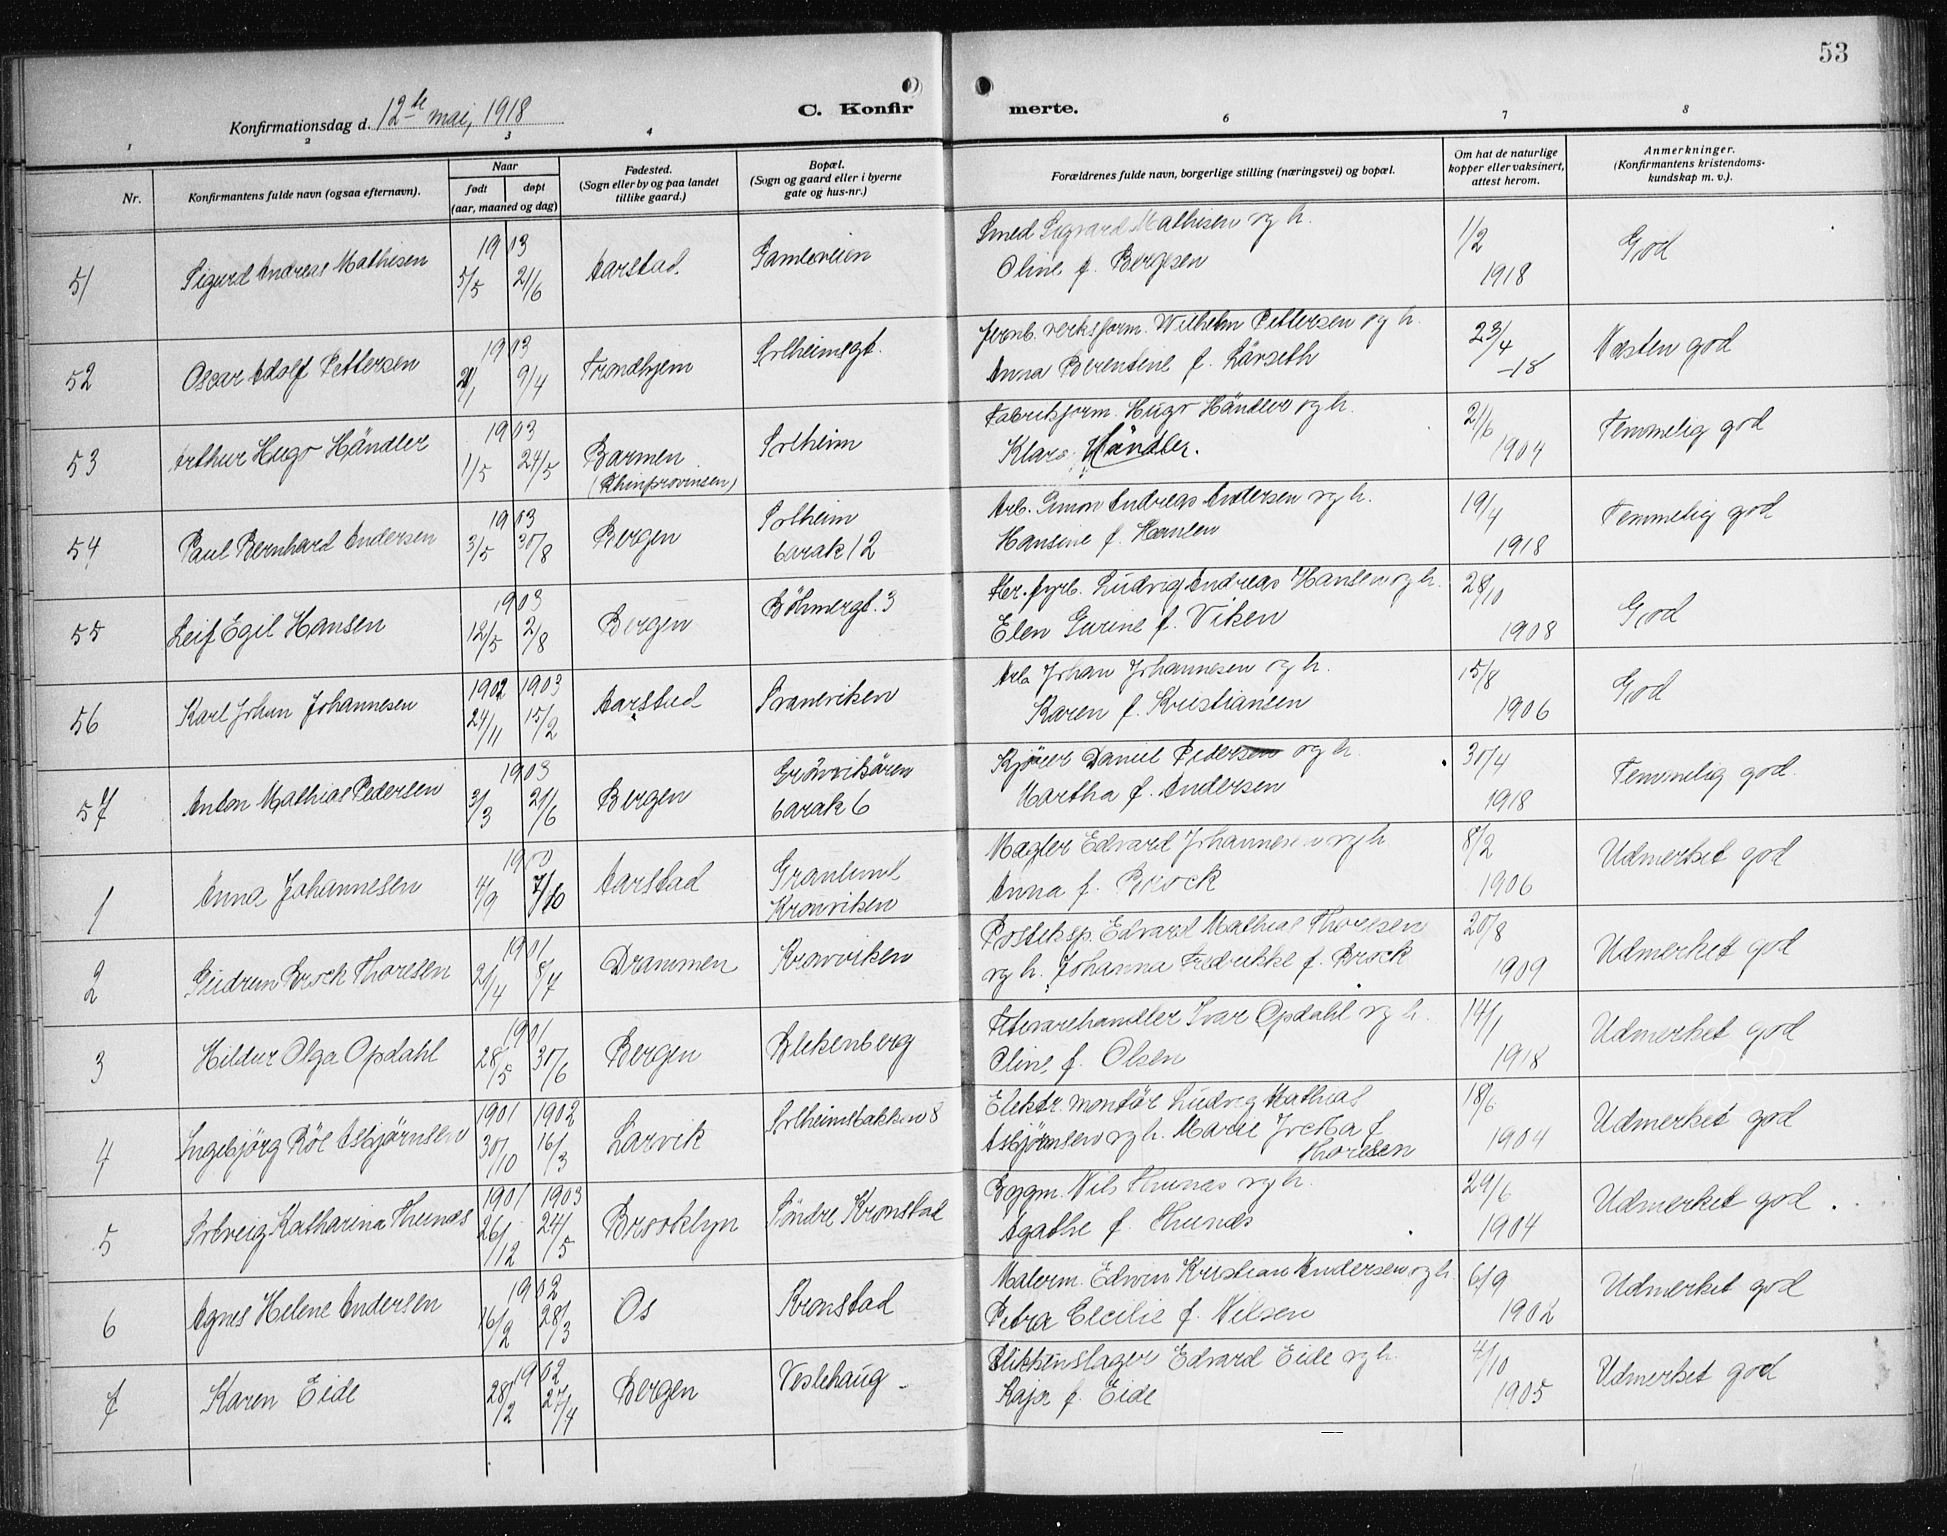 53
Konfirmationsdag d. 12te mai, 1918
C. Konfir merte.
1 2 3 4 6 7 8
Nr.
Konfirmantens fulde navn (ogsaa efternavn).
Naar
født døpt
(aar, maaned og dag)
Fødested.
(Sogn eller by og paa landet
tillike gaard.)
Bopæl.
(Sogn og gaard eller i byerne
gate og hus-nr.)
Forældrenes fulde navn, borgerlige stilling (næringsvei) og bopæl.
Om hat de naturlige
kopper eller vaksinert,
attest herom.
Anmerkninger.
(Konfirmantens kristendoms-
kundskap m. v.).
51 Sigurd Andreas Mathisen 1903 5/5 21/6 Aarstad. Gamleveien
Smed Sigvard Mathisen og h.
Oline f. Bergesen
1/2 1918 God
52 Oscar Adolf Pettersen 1903 9/4 Trondhjem Solheimsgt.
Jernb. verksform. Wilhelm Pettersen og h.
Anna Berentine f. Lärseth
23/4 -18 Næsten god
53 Arthur Hugo Händler 1903 1/5 24/5 Barmen (Rhinprovinsen) Solheim
Fabrikform. Hugo Händler og h.
Klara Händler.
21/6 1904 Temmelig god
54 Paul Bernhard Andersen 1903 3/5 30/8 Bergen Solheim
barak 12
Arb. Simon Andreas Andersen og h.
Hansine f.
19/4 1918 Temmelig god
55 Leif Egil Hansen 1903 12/5 2/8 Bergen Böhmergt. 3
fyrb. Ludvig Andreas Hansen og h.
Elen Gurine f. Viken
28/10 1908 God
56 Karl Johan Johannesen 1902 24/11 1903 15/2 Aarstad Svaneviken
Arb. Johan Johannesen og h.
Karen f. Kristiansen
15/8 1906 God
57 Anton Mathias Pedersen 1903 3/3 21/6 Bergen
barak 6
Kjörer Daniel Pedersen og h.
Martha f. Andersen
30/4 1918 Temmelig god.
1 Anna Johannesen 4/9 7/10 Aarstad Granlund
Kronviken
Mægler Edvard Johannesen og h
Anna f. Brock
8/2 1906 Udmerket god
2 Gudrun Brock Thoresen 1901 21/4 8/7 Drammen Kronviken
Posteksp. Edvard Mathias Thoresen
og h. Johanna Fredrikke f. Brock
20/8 1909 Udmerket god
3 Hildur Olga Opdahl 1901 28/5 30/6 Bergen Blekenberg
Ivar Opdahl og h.
Oline f. Olsen
14/1 1918 Udmerket god
4 Ingebjörg Röe Asbjørnsen 1901 30/10 1902 16/3 Larvik Solheimsbakken 8
Elektr. montör Ludvig Mathias
Asbjørnsen og h. Marie f
Thoresen
18/6 1904 Udmerket god
5 Solveig Katharina Thunæs 1901 26/12 1903 24/5 Brooklyn Söndre Kronstad
Bygm. Nils Thunæs og h.
Agathe f. Thunæs
29/6 1904 Udmerket god.
6 Agnes Helene Andersen 1902 16/2 28/3 Os Kronstad
Malerm. Edwin Kristian Andersen og h.
Petra Cecilie f. Nilsen
6/9 1902 Udmerket god
7 Karen Eide 1902 28/2 27/4 Bergen Veslehaug
Blikkenslager Edvard Eide og h.
Kaja f. Eide
4/10 1905 Udmerket god